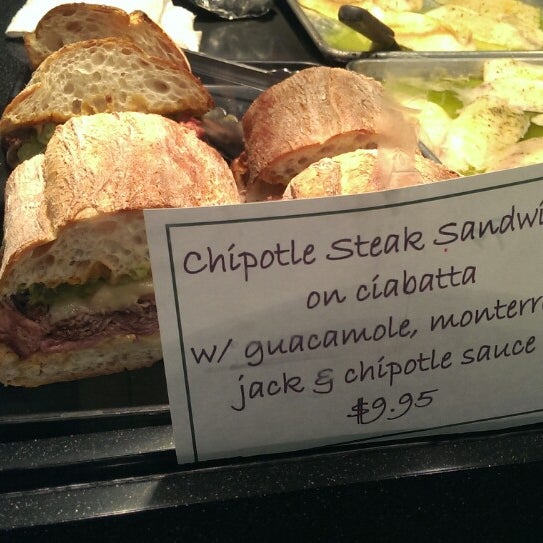 Chipotle Steak Sandwi
on ciabatta
w/ guacamole, monterr
jack & chipotle sauce
$9.95